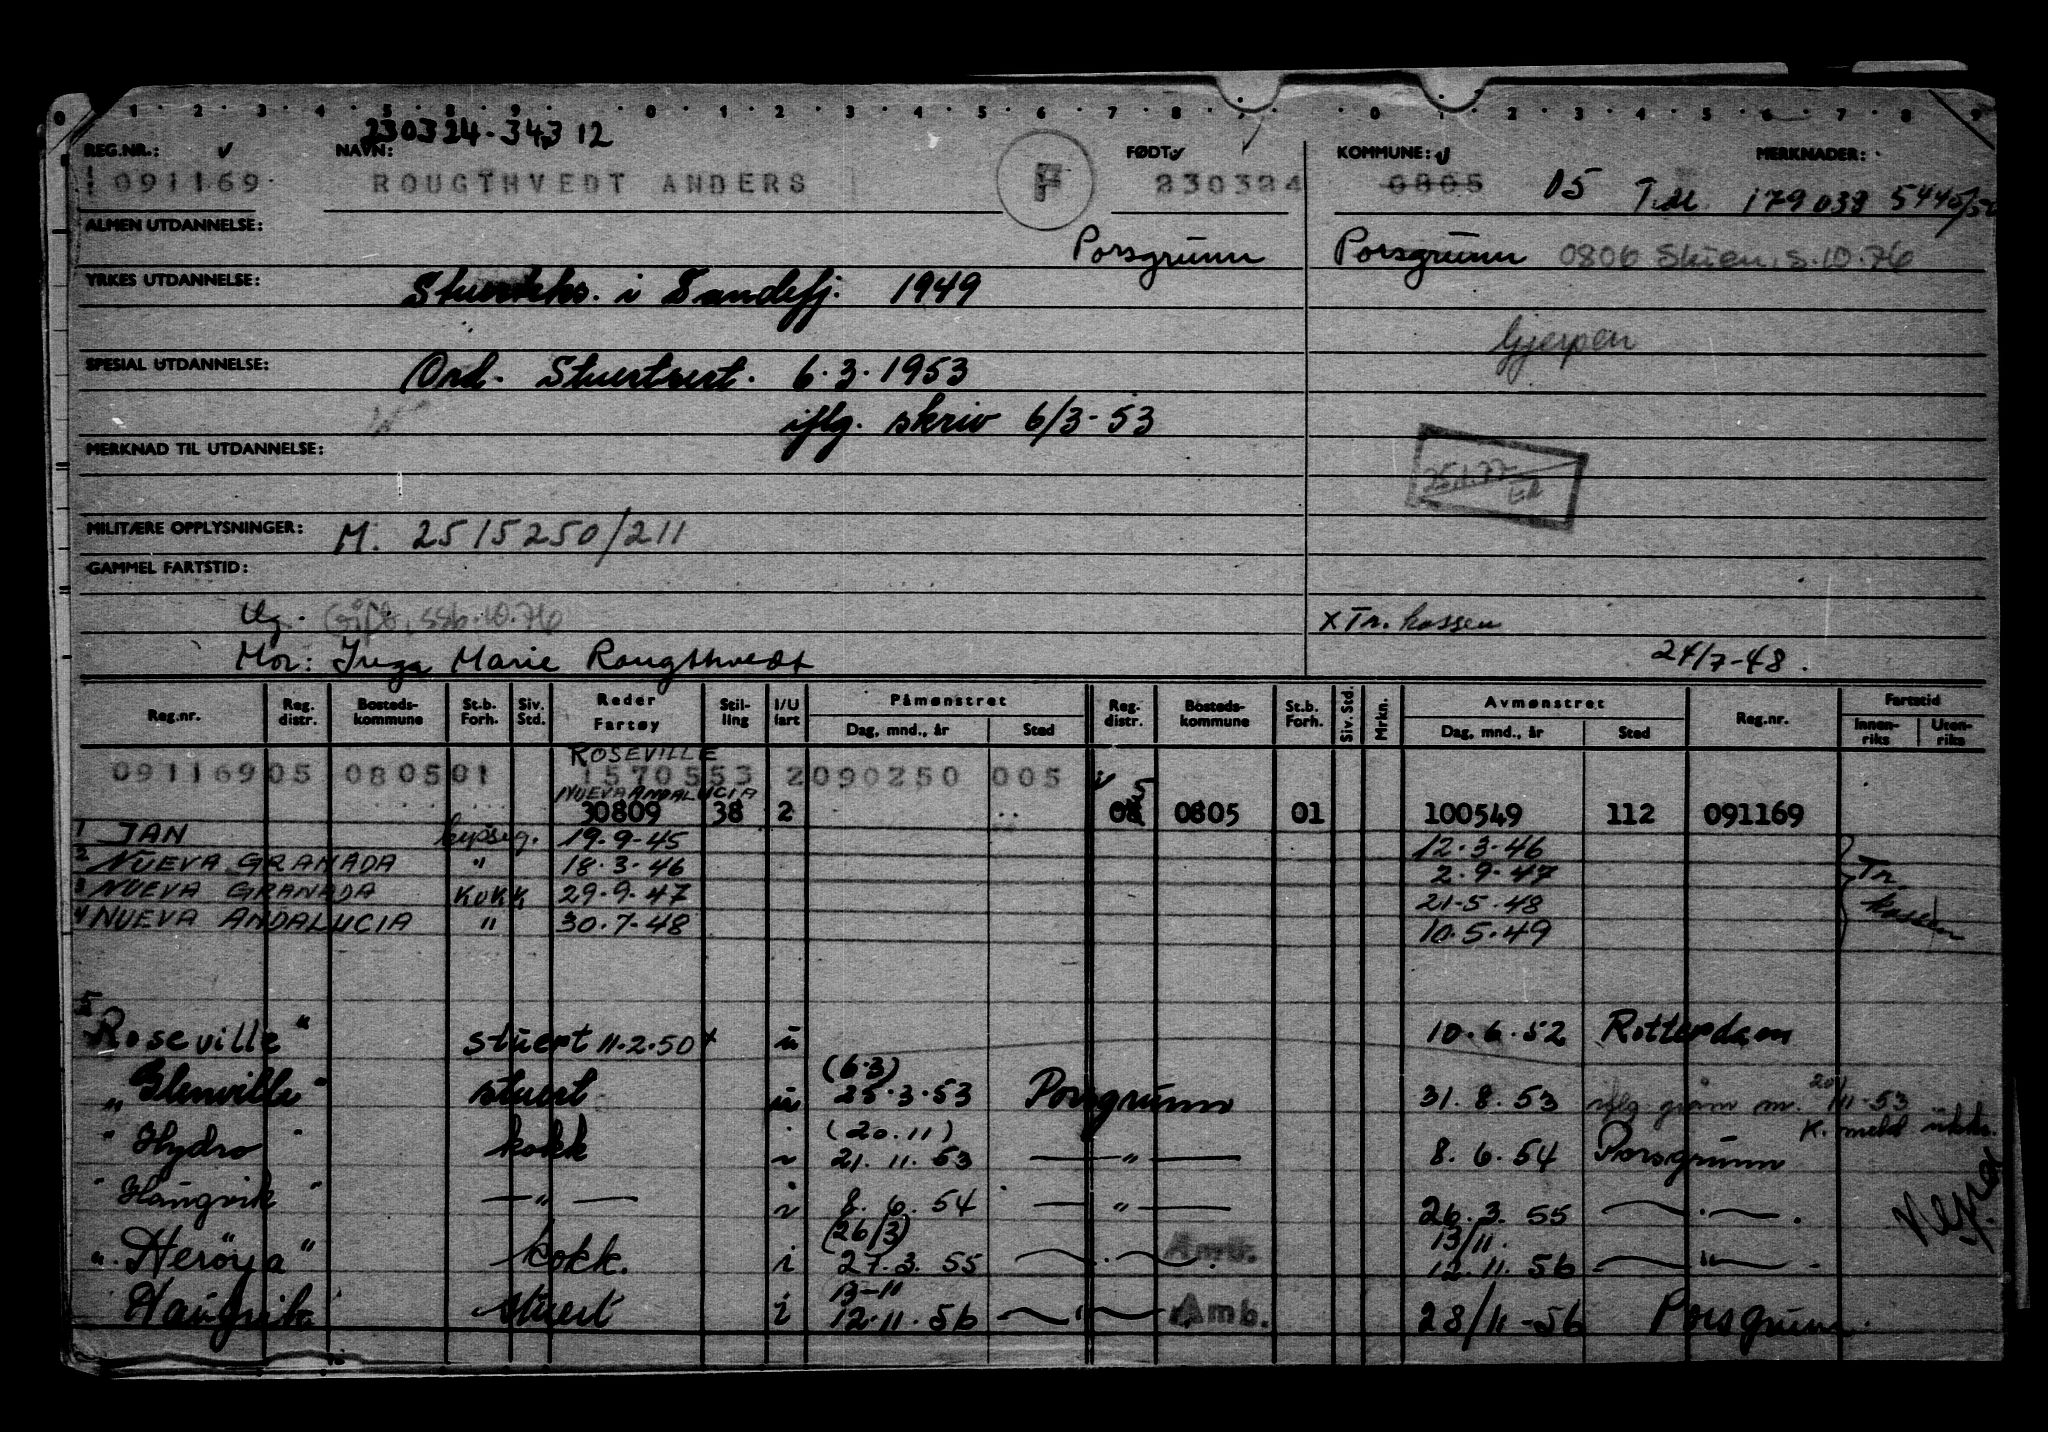 0 1 2 3 4 5 8 9 0 1 2 3 4 5 6 7 8 9 0 1 2 3 4 5 6 7 8 9
230324-34312
REG.NR.: NAVN: FØDT: KOMMUNE: MERKNADER:
091169 ROUGTHVEDT ANDERS F 230324 0805 05 T.M. 179038 5445/50
ALMEN UTDANNELSE: Porsgrunn Porsgrunn 0806 Skien, s.10.76
YRKES UTDANNELSE: Stuerteks. i Sandefj. 1949
Gjerpen
SPESIAL UTDANNELSE: Ord. Stuertsert. 6.3.1953
iflg. skriv 6/3-53
MERKNAD TIL UTDANNELSE:
25.1.77
MILITÆRE OPPLYSNINGER: M. 2515250/211
GAMMEL FARTSTID:
Ug. Gift, ssb.10.76 x Tr. kassen
Mor: Inga Marie Rougthvedt 24/7-48.
Reg.nr. Reg. distr. Bosteds-kommune St.b. Forh. Siv. Std. Reder Fartøy Stil-ling I/U fart Påmønstret Dag, mnd., år Sted Reg. distr. Bosteds-kommune St.b. Forh. Siv. Std. Mrkn. Avmønstret Dag, mnd., år Sted Reg.nr. Fartstid Innen-riks Uten-riks
ROSEVILLE
091169 05 0805 01 1570553 2 090250 005
NUEVA ANDALUCIA 5
30809 38 2 08 0805 01 100549 112 091169
1 JAN byssg. 19-9-45 12.3.46
2 NUEVA GRANADA " 18.3.46 2.9.47 Tr.
3 NUEVA GRANADA KOKK 29.9.47 21-5-48 kassen
4 NUEVA ANDALUCIA " 30.7-48 10.5.49
5
"Roseville" stuert 11.2.50 x u 10.6.52 Rotterdam
(6.3) 20/
"Glenville" stuert u 25.3.53 Porsgrunn 31.8.53 iflg. gråm m. 11-53
(20.11) K. meld
"Hydro" kokk i 21.11.53 — " — 8.6.54 Porsgrunn
"Haugvik" — " — i 8.6.54 — " — 26.3.55 — " —
(26/3) Amb. 13/11
"Herøya" kokk. i 27.3.55 — " — 12.11.56 — " —
13-11
Haugvik stuert i 12.11.56 — " — Amb. 28/11-56 Porsgrunn